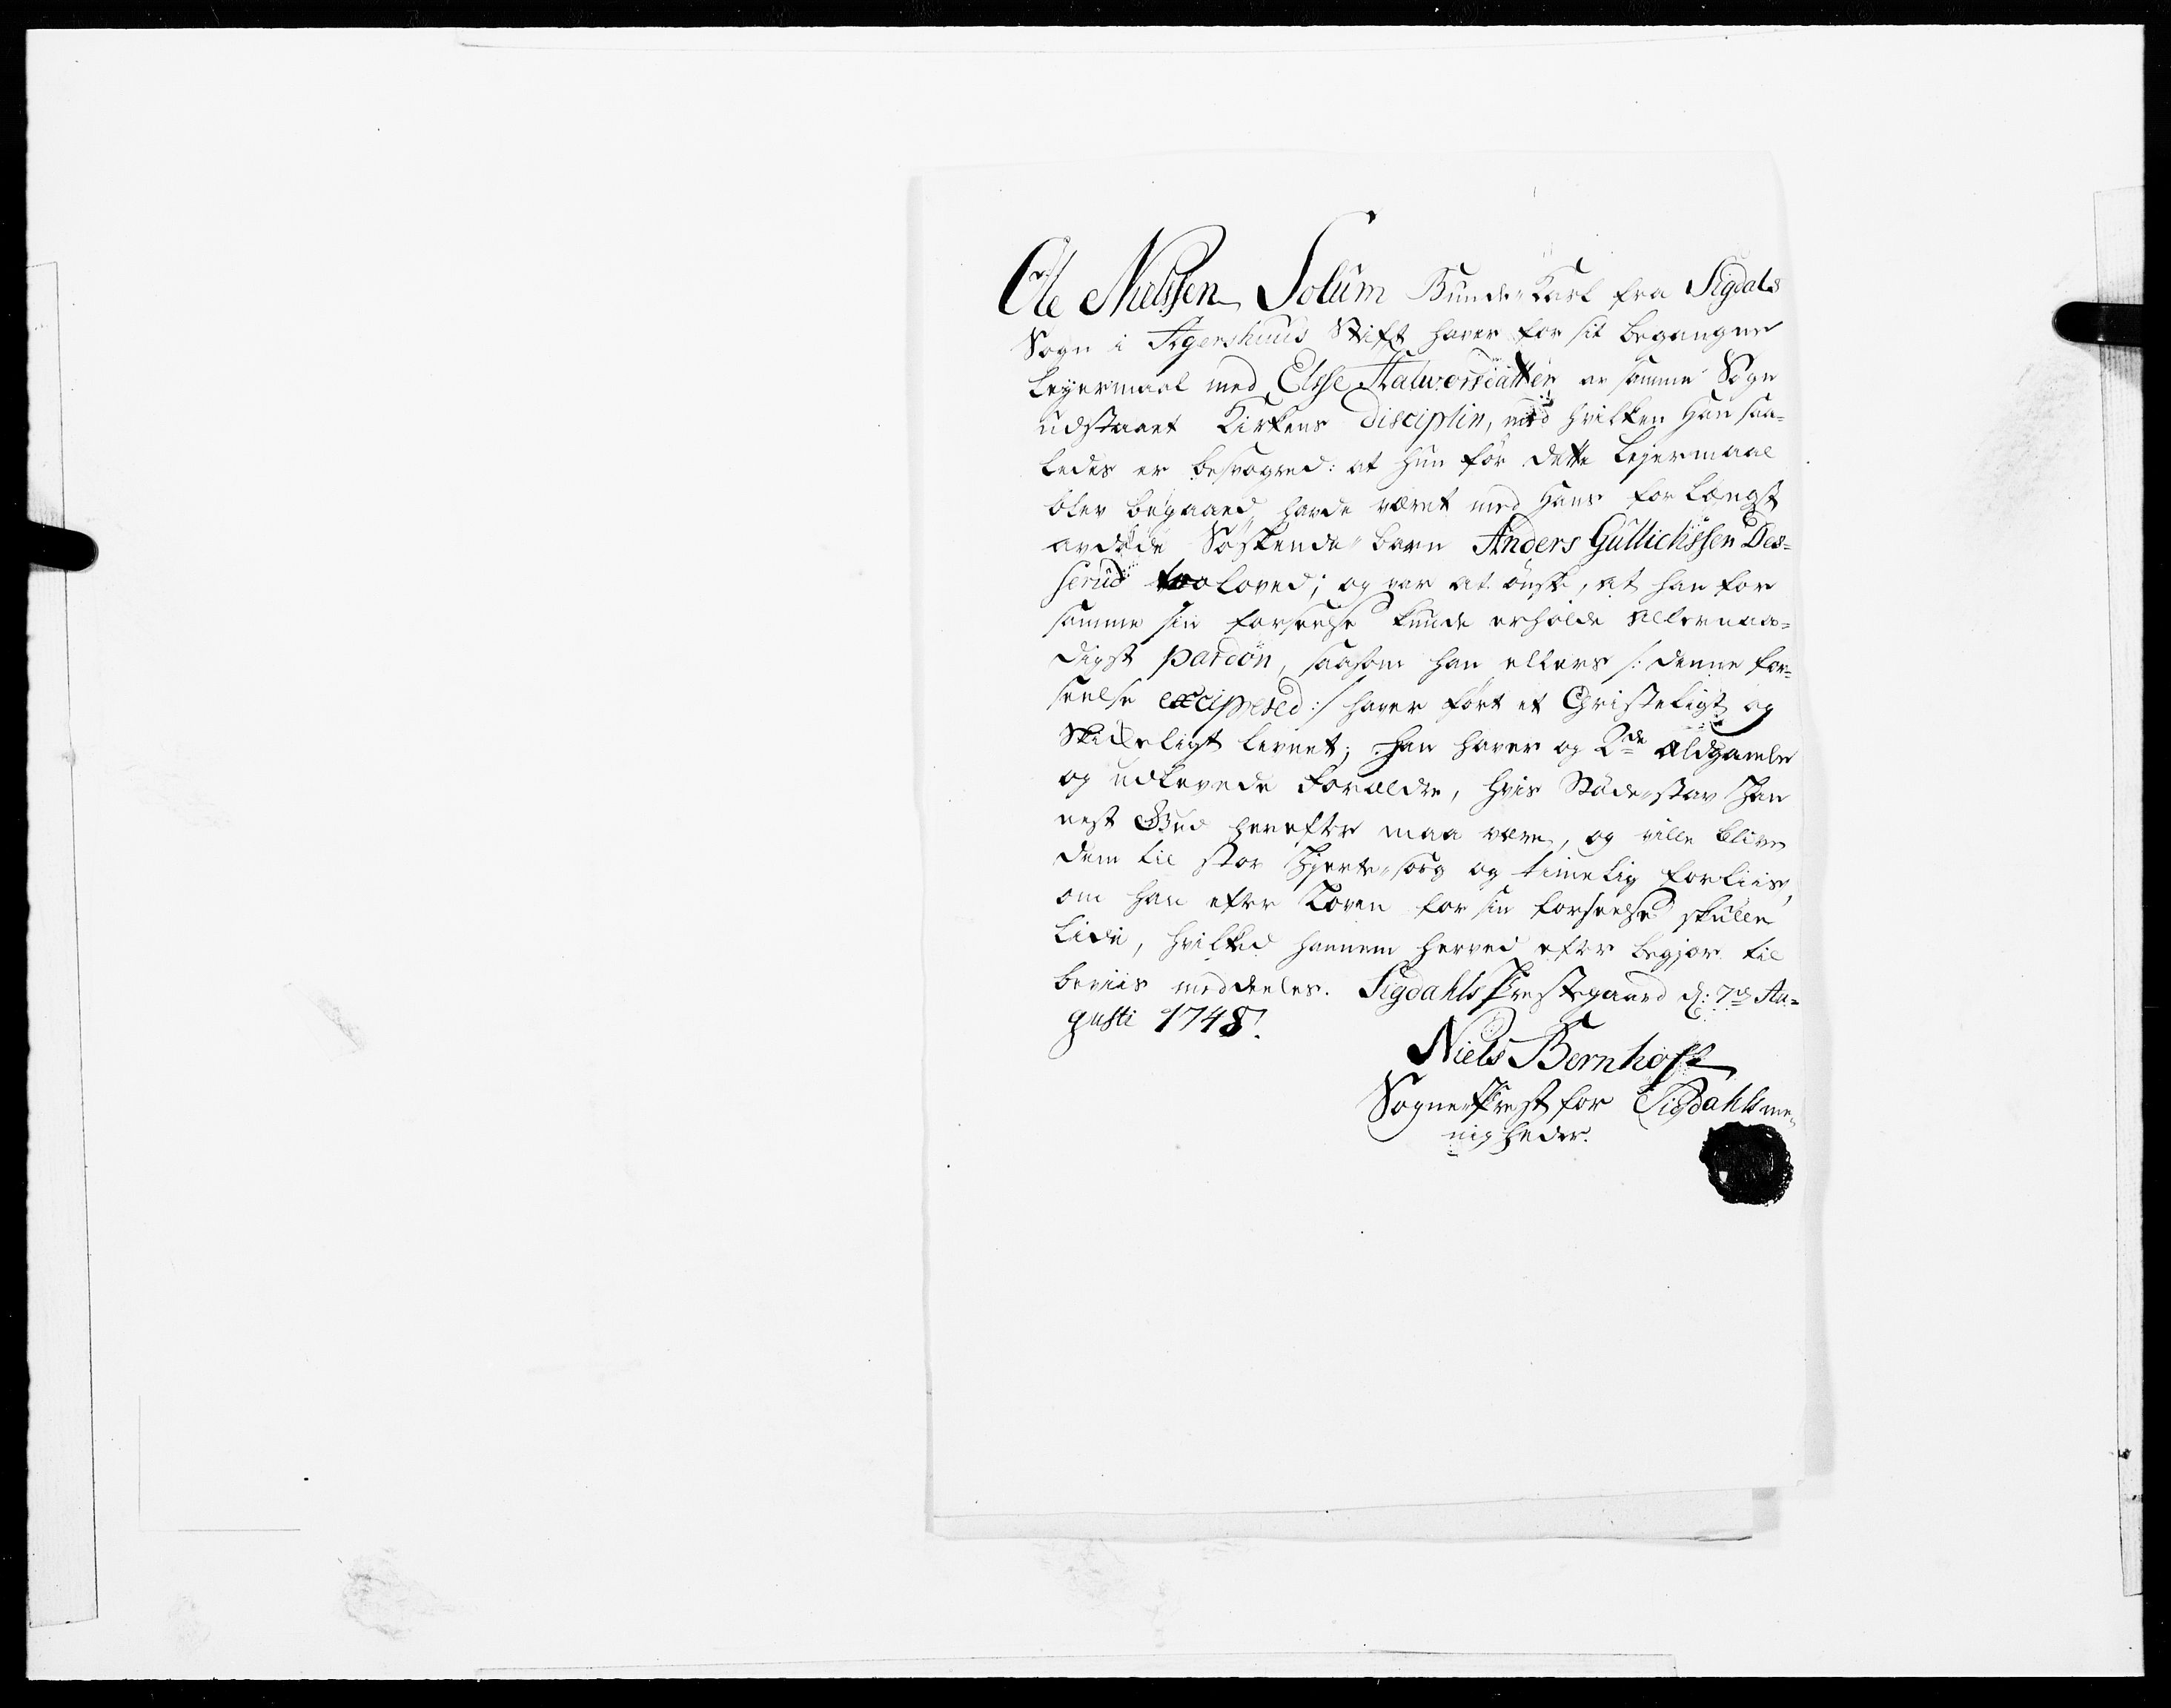 Ole Nielssen Solum Bunde-Karl fra Sigdals
Sogn i Agershuus Stift haver for sit begangne
Leyermaal med Elsse Halworsdatter av samme Sogn
udstaaet Kirkens Disciplin, med hvilken han saa-
ledes er besvogred: at hun før dette Lejermaal
blev begaaed, havde været med hans for længst
avdøde Søskende-barn Anders Gullichssen Des-
serud trolovet; og var at ønske, at han for
samme sin forseelse kunde erholde allernaa-
digst pardon, saasom han ellers /: denne for-
seelse exciperet :/ haver ført et Christeligt og
Skikkeligt levnet; han haver og 2de Aldgamle
og udlevede Forældre, hvis Støde-stav Han
nest Gud herefter maa være, og ville blive
dem til stor Hjerte-sorg og timelig forliis,
om han efter Loven for sin forseelse skulle
lide, hvilked hannem herved efter begjær til
beviis meddeeles. Sigdahls Prestegaard d: 7de Au-
gusti 1748.
Niels Bernhoft
Sogne-Prest for Sigdahls me-
nigheder.